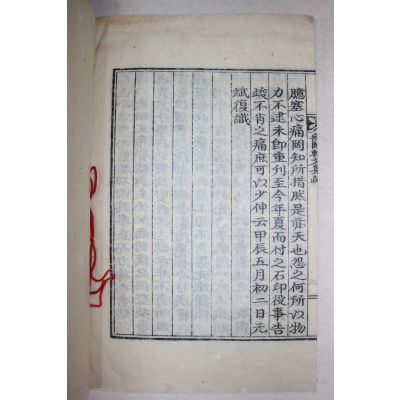 臆塞心痛罔知所措然是亦天也怨之何所以物
力不逮未即重刊至今年夏而付之石印役事告
竣不肖之痛庶可以少伸云甲辰五月初二日元
斌復識